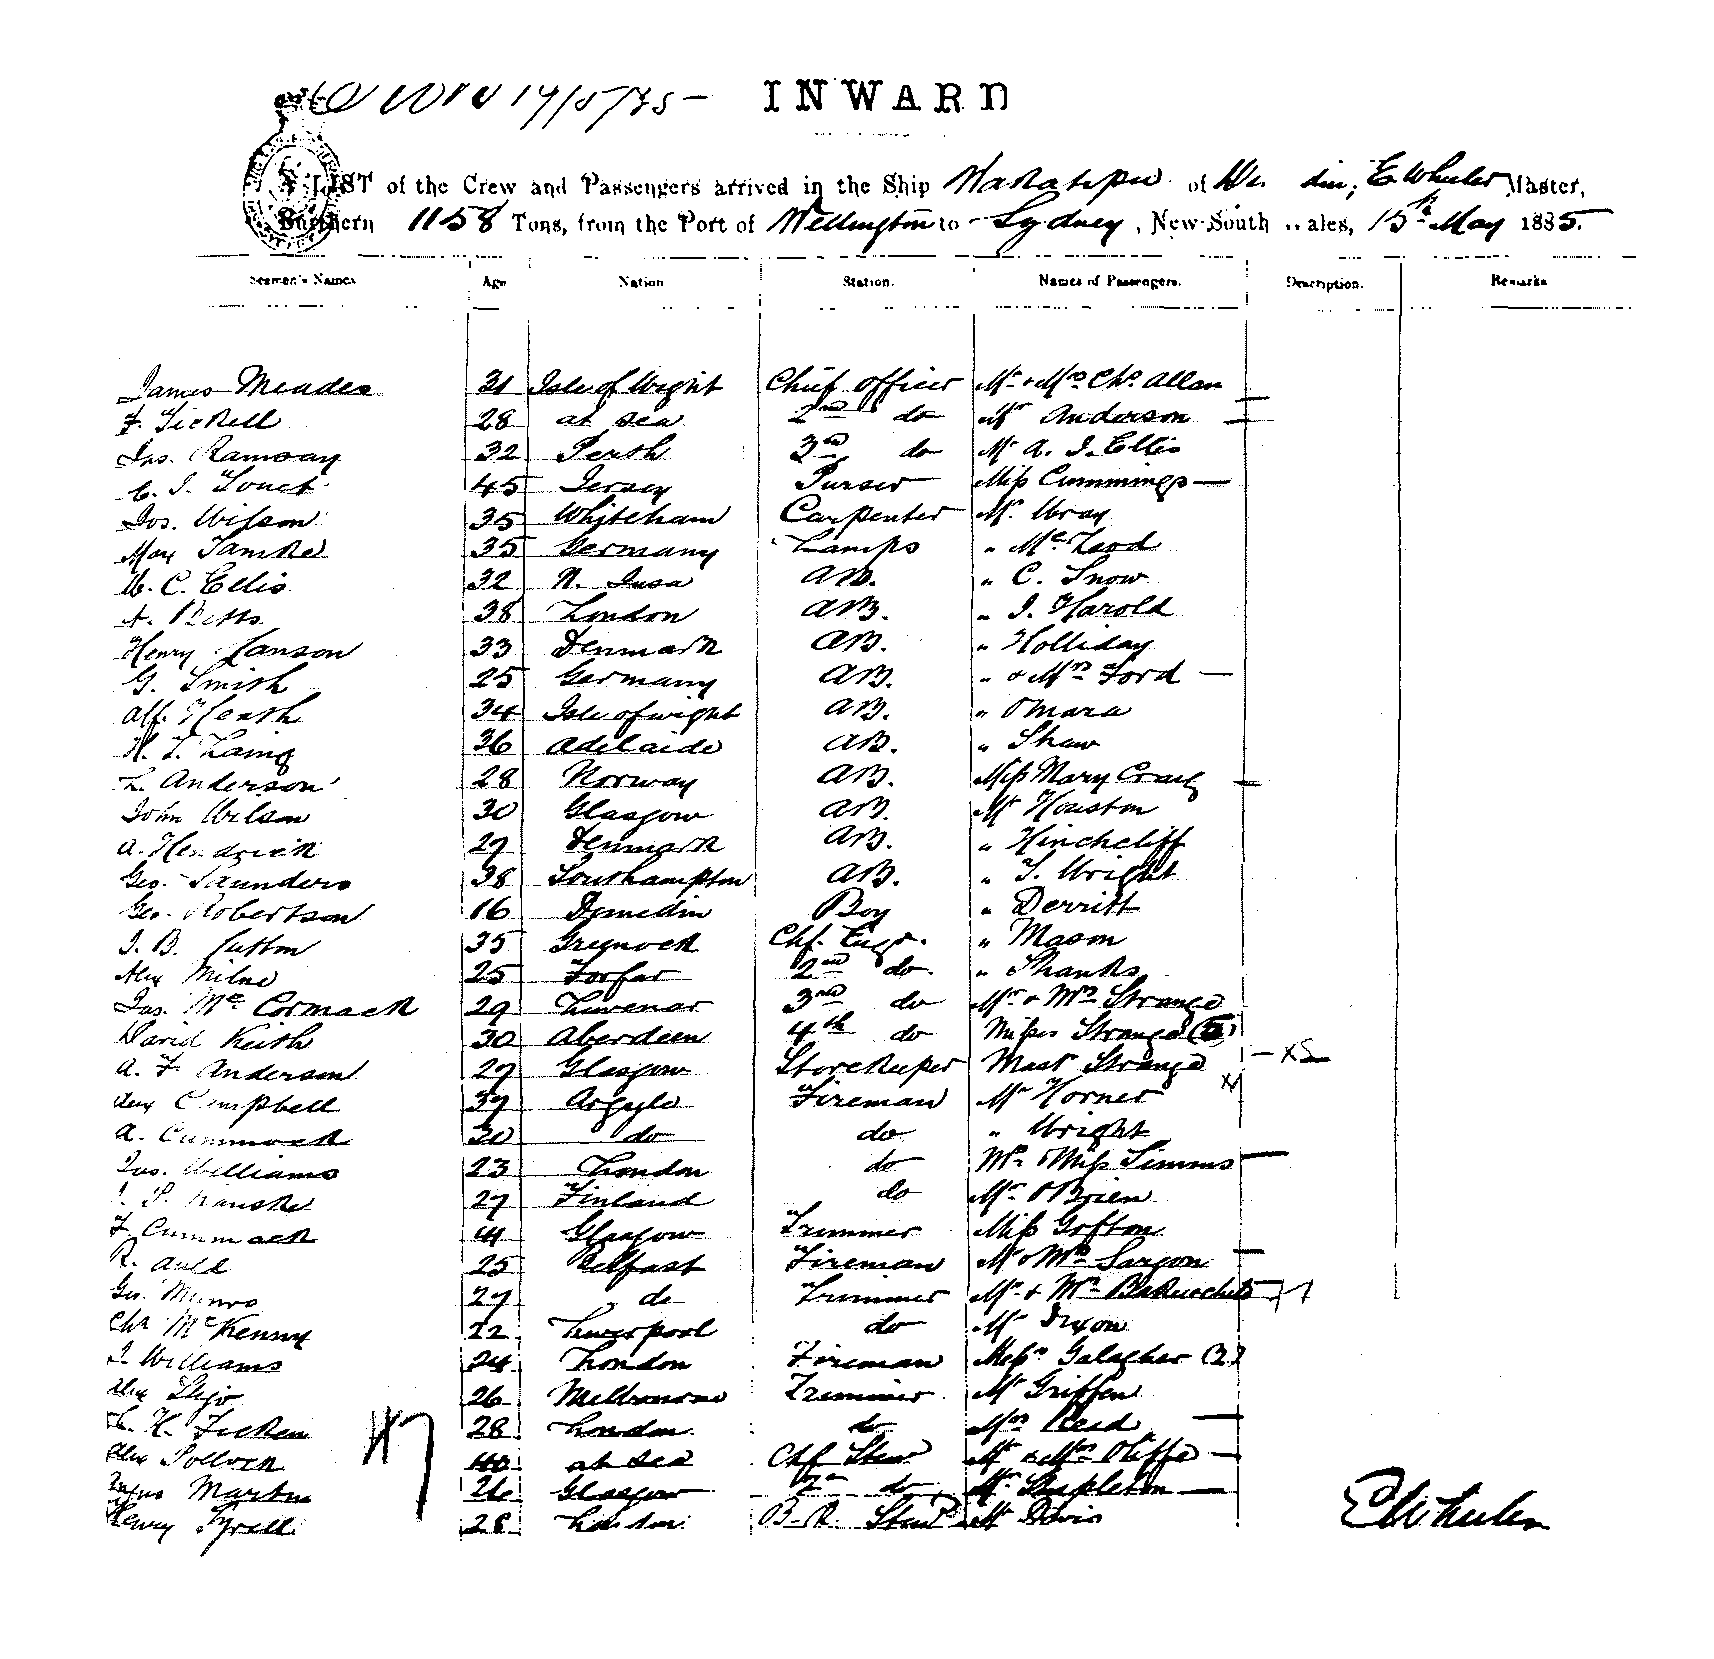 INWARD
LIST of the Crew and Passengers arrived in the Ship Wakatipu of din, E Wheeler Master,
Burthern 1158 Tons, from the Port of Wellington to Sydney, New South ales, 15th May 1885.
Seamen's Names Age Nation Station. Names of Passengers. Description. Remarks
James Meades 31 Isle of Wight Chief officer Mr & Mrs Chs. Allan
F. Tickell 28 at sea 2nd do Mr Anderson
Jas. Ramsay 32 Perth 3rd do Mr A. J. Ellis
45 Jersey Purser Miss Cummings
Jos. Wilson 35 Whiteham Carpenter Mr. Wray
Max 35 Germany Lamps " Mc
W. C. Ellis 32 N. AB. " C. Snow
A. Betts 38 London AB. " J. Harold
Henry Hanson 33 Denmark AB. " Holliday
G. Smith 25 Germany AB. " & Mrs Ford
Alf. Heath 34 Isle of wight AB. " OMara
H. T. Laing 36 Adelaide AB. " Shaw
L. Anderson 28 Norway AB. Miss Mary Craig
John Wilson 30 Glasgow AB. Mr Houston
A. Hendrick 27 Denmark AB. " Hinchcliff
Geo. Saunders 38 Southampton AB. " T. Wright
Geo. Robertson 16 Dunedin Boy " Derritt
J. B. Sutton 35 Greenock Chf. Engr. " Mason
Alex Milne 25 Forfar 2nd do. " Shanks
Jas. Mc Cormack 29 3rd do Mr & Mrs Strange
David Keith 30 Aberdeen 4th do Misses Strange
A. F. Anderson 27 Glasgow Storekeeper Mast Strange
Alex Campbell 37 Argyle Fireman Mr Horner
A. Cummack 30 do do " Wright
Jas. Williams 23 London do Mrs & Miss Simms
27 Finland do Mr OBrien
F Cummack 41 Glasgow Trimmer Miss Gofton
R. Auld 25 Belfast Fireman Mr & Mrs Sargon
Geo. Munro 27 do Trimmer Mr & Mrs
Chs McKenny 22 Liverpool do Mr Dixon
J. Williams 24 London Fireman Messrs Galagher (2)
Alex 26 Melbourne Trimmer Mr Griffen
H. 28 London do Mrs Reid
Alex Pollock 40 at sea Chf Stew Mr & Mrs Oliffe
Angus Martin 26 Glasgow 2nd do Mr Stapleton
Henry Tyrell 28 London B. R. Stew Mr Davis
E Wheeler